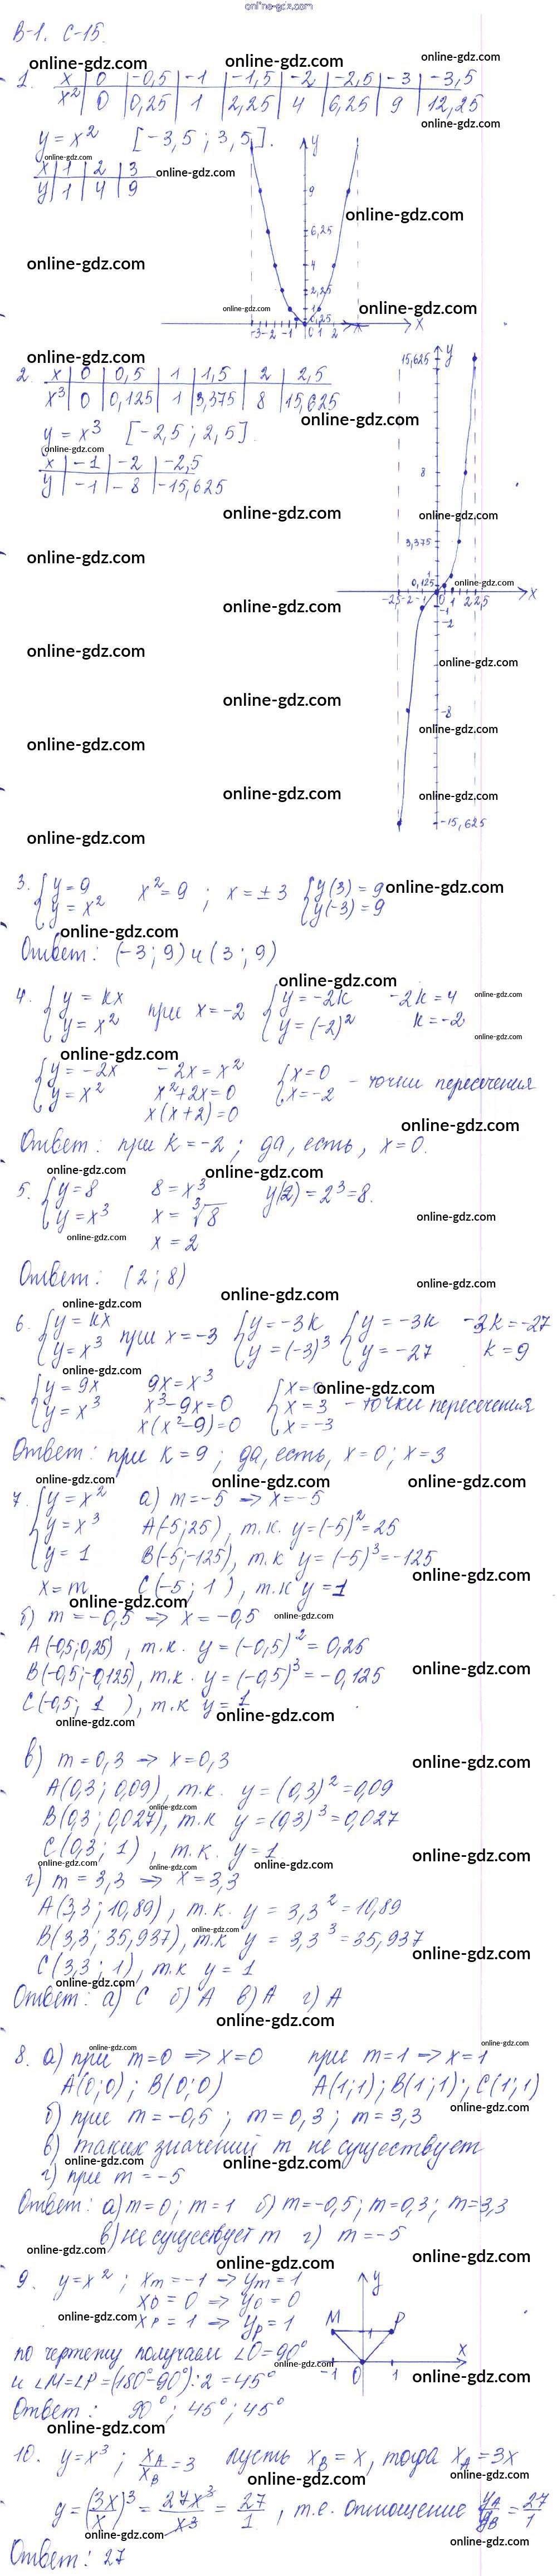 online-gdz.com
В-1. С-15.
online-gdz.com online-gdz.com online-gdz.com
1. x | 0 | -0,5 | -1 | -1,5 | -2 | -2,5 | -3 | -3,5
x² | 0 | 0,25 | 1 | 2,25 | 4 | 6,25 | 9 | 12,25
online-gdz.com
y = x² [-3,5 ; 3,5].
online-gdz.com
x | 1 | 2 | 3
y | 1 | 4 | 9
online-gdz.com
y
9
online-gdz.com
6,25
online-gdz.com
4
2,25
online-gdz.com
1
0,25
online-gdz.com
-3 -2 -1 0 1 2 x
online-gdz.com
2. x | 0 | 0,5 | 1 | 1,5 | 2 | 2,5
x³ | 0 | 0,125 | 1 | 3,375 | 8 | 15,625
online-gdz.com
y = x³ [-2,5 ; 2,5].
online-gdz.com
x | -1 | -2 | -2,5
y | -1 | -8 | -15,625
15,625 y
8
online-gdz.com
online-gdz.com
3,375
online-gdz.com
1
0,125
online-gdz.com
-2,5 -2 -1 0 1 2 2,5 x
online-gdz.com
-1
-2
online-gdz.com
online-gdz.com
online-gdz.com
-8
online-gdz.com
online-gdz.com
online-gdz.com
online-gdz.com
-15,625
online-gdz.com
3. { y = 9 x² = 9 ; x = ± 3 { y(3) = 9
online-gdz.com
y = x² y(-3) = 9
online-gdz.com
Ответ: (-3 ; 9) и (3 ; 9)
online-gdz.com
4. { y = kx при x = -2 { y = -2k -2k = 4
online-gdz.com
y = x² y = (-2)² k = -2
online-gdz.com
online-gdz.com
{ y = -2x -2x = x² { x = 0 - точки пересечения
y = x² x² + 2x = 0 x = -2
x(x+2) = 0
online-gdz.com
Ответ: при k = -2 ; да, есть, x = 0.
online-gdz.com online-gdz.com
5. { y = 8 8 = x³ y(2) = 2³ = 8.
y = x³ x = ³√8
online-gdz.com
online-gdz.com
x = 2
Ответ: (2 ; 8)
online-gdz.com
online-gdz.com
online-gdz.com
6. { y = kx при x = -3 { y = -3k { y = -3k -3k = -27
y = x³ y = (-3)³ y = -27 k = 9
online-gdz.com
{ y = 9x 9x = x³ { x = 0
online-gdz.com
y = x³ x³ - 9x = 0 x = 3 - точки пересечения
x(x²-9) = 0 x = -3
Ответ: при k = 9 ; да, есть, x = 0 ; x = 3
online-gdz.com online-gdz.com online-gdz.com
7. { y = x² а) m = -5 → x = -5
y = x³ A(-5;25), т.к. y = (-5)² = 25
y = 1 B(-5;-125), т.к y = (-5)³ = -125
online-gdz.com
x = m C(-5; 1 ), т.к y = 1
online-gdz.com
б) m = -0,5 ⇒ x = -0,5
online-gdz.com
A(-0,5;0,25), т.к. y = (-0,5)² = 0,25
B(-0,5;-0,125), т.к. y = (-0,5)³ = -0,125
online-gdz.com
C(-0,5; 1 ), т.к y = 1
online-gdz.com
online-gdz.com
в) m = 0,3 → x = 0,3
online-gdz.com
A(0,3 ; 0,09), т.к. y = (0,3)² = 0,09
online-gdz.com
B(0,3; 0,027), т.к y = (0,3)³ = 0,027
C(0,3; 1), т.к. y = 1
online-gdz.com
online-gdz.com online-gdz.com online-gdz.com
г) m = 3,3 ⇒ x = 3,3
A(3,3 ; 10,89), т.к. y = 3,3² = 10,89
online-gdz.com
B(3,3; 35,937), т.к y = 3,3³ = 35,937
online-gdz.com
C(3,3 ; 1), т.к y = 1
online-gdz.com
Ответ: а) C б) A в) A г) A
online-gdz.com
online-gdz.com online-gdz.com
8. а) при m=0 ⇒ x=0 при m=1 → x=1
A(0;0); B(0;0) A(1;1); B(1;1); C(1;1)
online-gdz.com
б) при m = -0,5 ; m = 0,3 ; m = 3,3
в) таких значений m не существует
online-gdz.com online-gdz.com
г) при m = -5
Ответ: а) m=0; m=1 б) m=-0,5; m=0,3; m=3,3
в) не существует m г) m = -5
online-gdz.com online-gdz.com online-gdz.com
9. y = x² ; xм = -1 → yм = 1
xо = 0 ⇒ yо = 0
online-gdz.com
xр = 1 → yр = 1
y
M P
x
-1 0 1
по чертежу получаем ∠O = 90°
online-gdz.com
и ∠M = ∠P = (180°-90°):2 = 45°
online-gdz.com
Ответ: 90° ; 45° ; 45°
online-gdz.com
10. y = x³ ; xA/xB = 3 пусть xB = x, тогда xA = 3x
online-gdz.com
online-gdz.com
y = (3x/x)³ = 27x³/x³ = 27/1, т.е. отношение yA/yB = 27/1
online-gdz.com
online-gdz.com
Ответ: 27